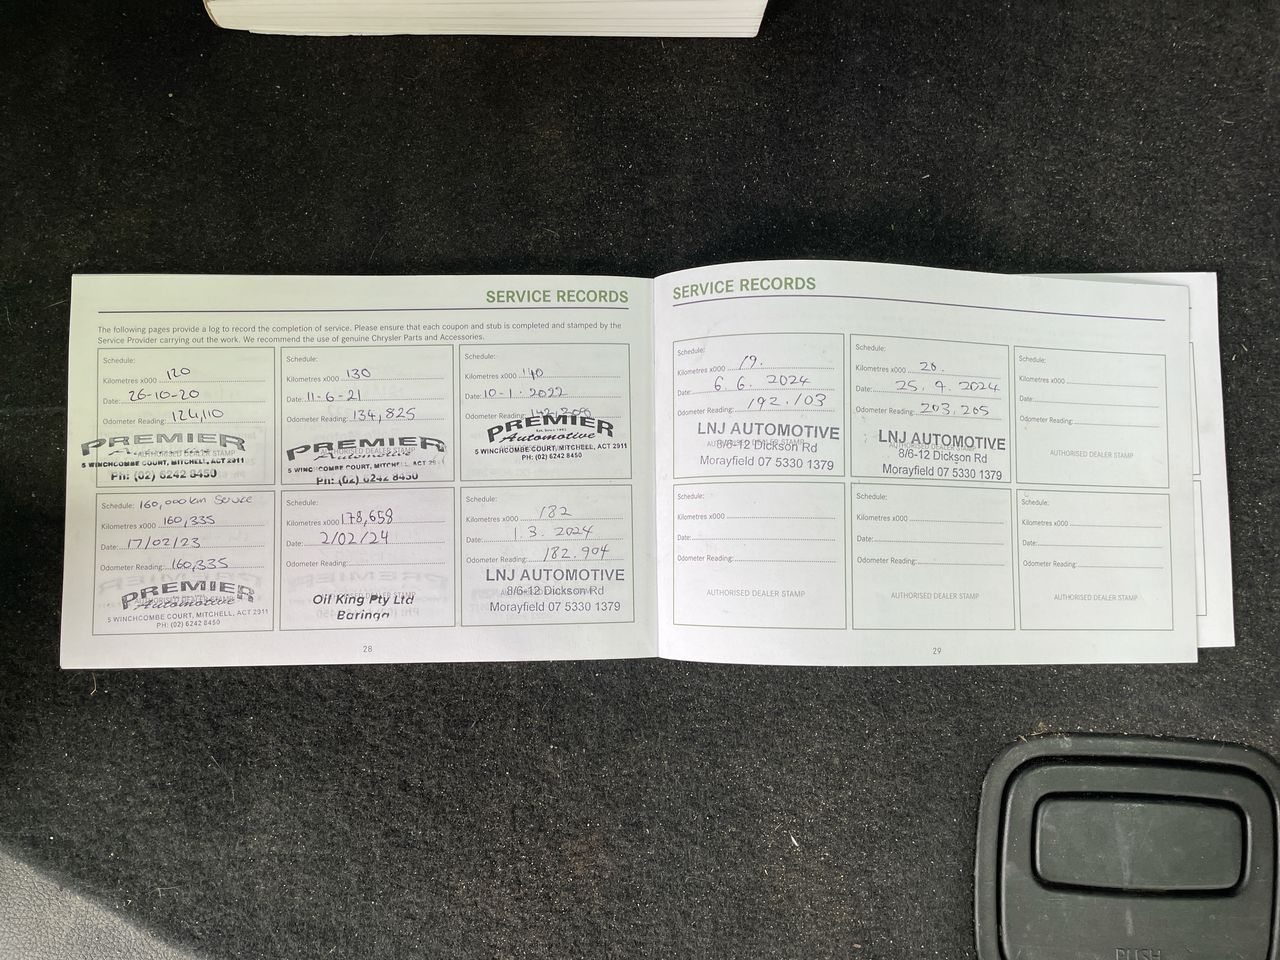 SERVICE RECORDS
The following pages provide a log to record the completion of service. Please ensure that each coupon and stub is completed and stamped by the
Service Provider carrying out the work. We recommend the use of genuine Chrysler Parts and Accessories.
Schedule:
Kilometres x000 120
Date: 26-10-20
Odometer Reading: 124,110
PREMIER
AUTHORISED DEALER STAMP
5 WINCHCOMBE COURT, MITCHELL, ACT 2911
Ph: (02) 6242 8450
Schedule:
Kilometres x000 130
Date: 11-6-21
Odometer Reading: 134,825
PREMIER
Automotive
AUTHORISED DEALER STAMP
5 WINCHCOMBE COURT, MITCHELL, ACT
Ph: (02) 6242 8450
Schedule:
Kilometres x000 140
Date: 10-1-2022
Odometer Reading:
PREMIER
Automotive
5 WINCHCOMBE COURT, MITCHELL, ACT 2911
PH: (02) 6242 8450
Schedule: 160,000km Service
Kilometres x000 160,335
Date: 17/02/23
Odometer Reading: 160,335
PREMIER
Automotive
AUTHORISED DEALER STAMP
5 WINCHCOMBE COURT, MITCHELL, ACT 2911
PH: (02) 6242 8450
Schedule:
Kilometres x000 178,658
Date: 2/02/24
Odometer Reading:
AUTHORISED DEALER STAMP
Oil King Pty Ltd
Baringa
Schedule:
Kilometres x000 182
Date: 1.3.2024
Odometer Reading: 182.904
LNJ AUTOMOTIVE
AUTHORISED DEALER STAMP
8/6-12 Dickson Rd
Morayfield 07 5330 1379
28
SERVICE RECORDS
Schedule:
Kilometres x000 19.
Date: 6.6.2024
Odometer Reading: 192.103
LNJ AUTOMOTIVE
AUTHORISED DEALER STAMP
8/6-12 Dickson Rd
Morayfield 07 5330 1379
Schedule:
Kilometres x000 20.
Date: 25.9.2024
Odometer Reading: 203.205
LNJ AUTOMOTIVE
AUTHORISED DEALER STAMP
8/6-12 Dickson Rd
Morayfield 07 5330 1379
Schedule:
Kilometres x000
Date:
Odometer Reading:
AUTHORISED DEALER STAMP
Schedule:
Kilometres x000
Date:
Odometer Reading:
AUTHORISED DEALER STAMP
Schedule:
Kilometres x000
Date:
Odometer Reading:
AUTHORISED DEALER STAMP
Schedule:
Kilometres x000
Date:
Odometer Reading:
AUTHORISED DEALER STAMP
29
PUSH